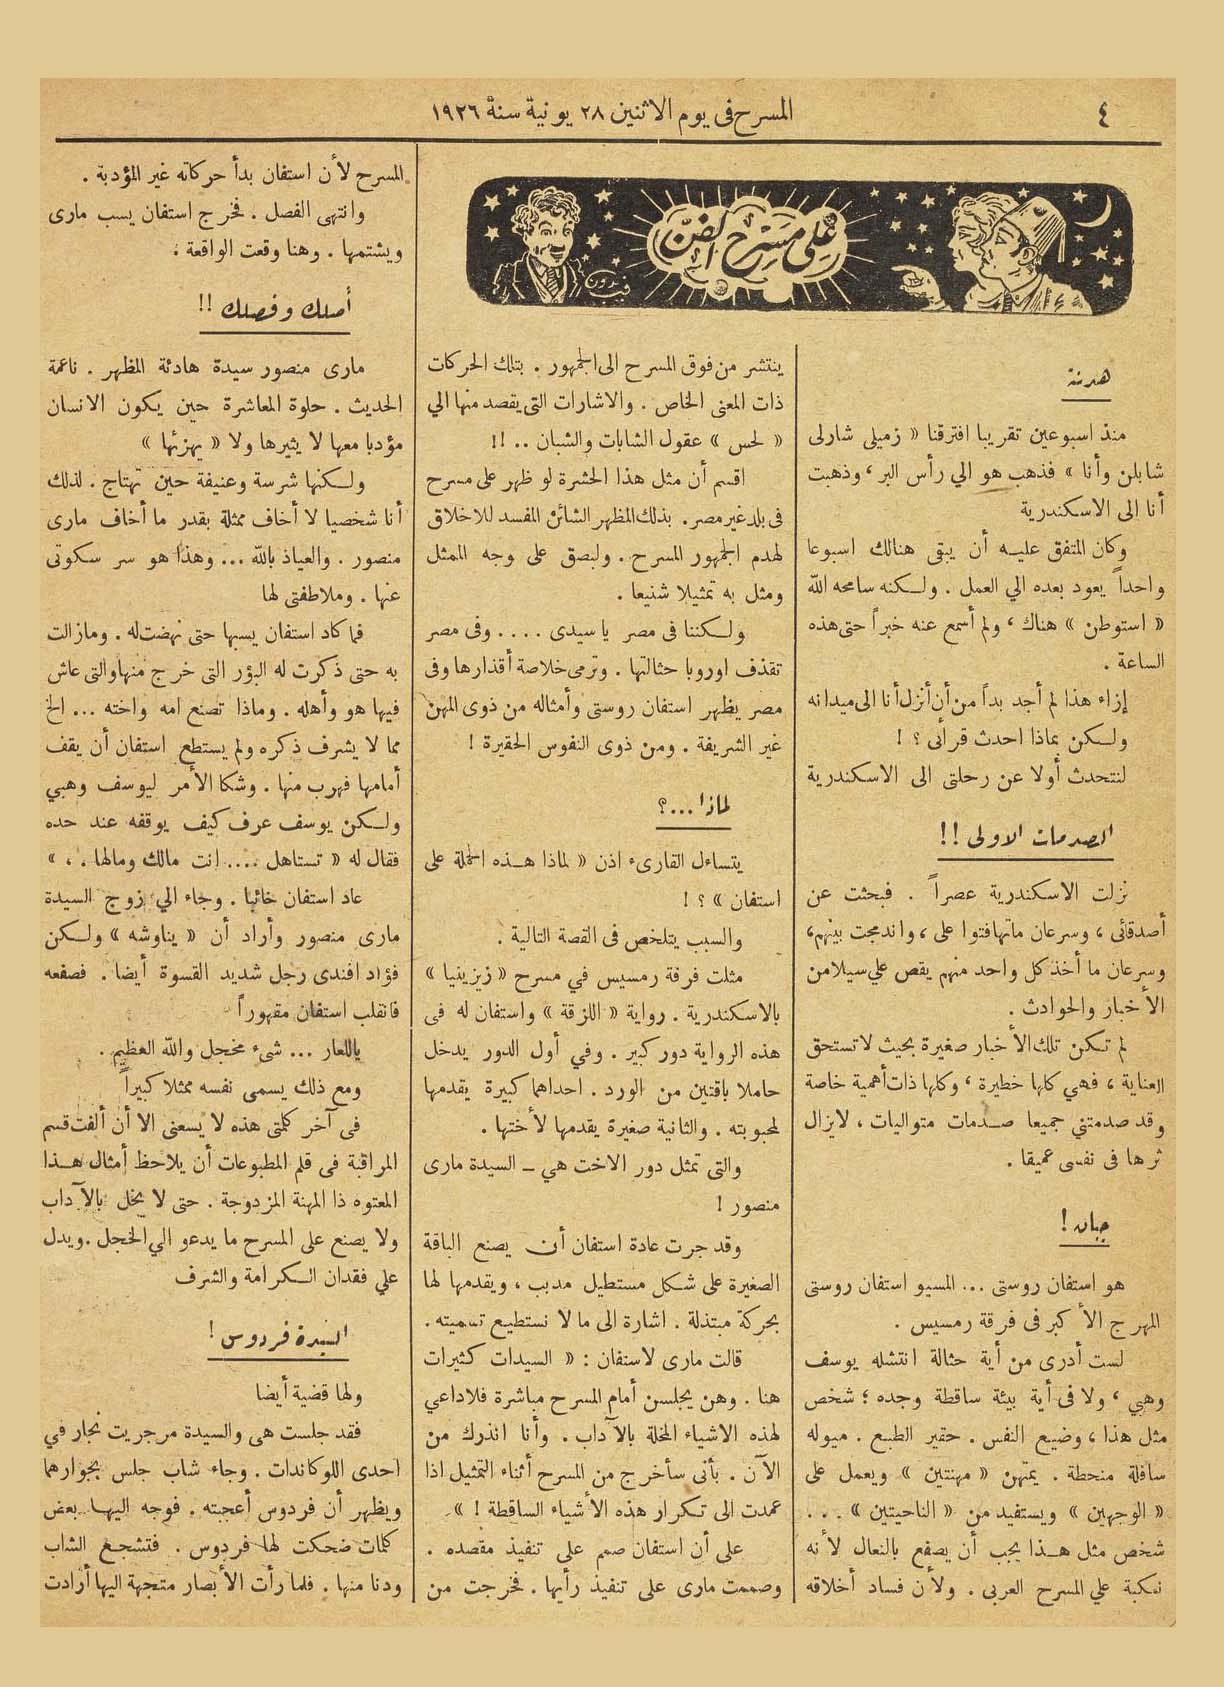 ٤
المسرح فى يوم الاثنين ٢٨ يونية سنة ١٩٢٦
على مسرح الفن
فيدون
هدنة
منذ اسبوعين تقريبا افترقنا « زميلى شارلى
شابلن وأنا » فذهب هو الي رأس البر ، وذهبت
أنا الى الاسكندرية
وكان المتفق عليه أن يبقى هنالك اسبوعا
واحداً يعود بعده الي العمل . ولكنه سامحه الله
« استوطن » هناك ، ولم أسمع عنه خبراً حتى هذه
الساعة .
إزاء هذا لم أجد بداً من أن أنزل أنا الى ميدانه
ولكن بماذا احدث قرأئى ؟ !
لنتحدث أولا عن رحلتى الى الاسكندرية
الصدمات الاولى !!
نزلت الاسكندرية عصراً . فبحثت عن
أصدقائى ، وسرعان ماتهافتوا على ، واندمجت بينهم ،
وسرعان ما أخذ كل واحد منهم يقص علي سيلا من
الأخبار والحوادث .
لم تكن تلك الأخبار صغيرة بحيث لاتستحق
العناية ، فهي كلها خطيرة ، وكلها ذات أهمية خاصة
وقد صدمتني جميعا صدمات متواليات ، لايزال
ثرها فى نفسى عميقا .
جبان !
هو استفان روستى ... المسيو استفان روستى
المهرج الأكبر فى فرقة رمسيس .
لست أدرى من أية حثالة انتشله يوسف
وهبي ، ولا فى أية بيئة ساقطة وجده ؛ شخص
مثل هذا ، وضيع النفس . حقير الطبع . ميوله
سافلة منحطة . يمتهن « مهنتين » ويعمل على
« الوجهين » ويستفيد من « الناحيتين » ...
شخص مثل هذا يجب أن يصفع بالنعال لأنه
نكبة علي المسرح العربى . ولأن فساد أخلاقه
ينتشر من فوق المسرح الى الجمهور . بتلك الحركات
ذات المعنى الخاص . والاشارات التى يقصد منها الي
« لحس » عقول الشابات والشبان .. !!
اقسم أن مثل هذا الحشرة لو ظهر على مسرح
فى بلد غير مصر . بذلك المظهر الشائن المفسد للاخلاق
لهدم الجمهور المسرح . ولبصق على وجه الممثل
ومثل به تمثيلا شنيعا .
ولكننا فى مصر ياسيدى .... وفى مصر
تقذف اوروبا حثالتها . وترمى خلاصة أقذارها وفى
مصر يظهر استفان روستى وأمثاله من ذوى المهن
غير الشريفة . ومن ذوى النفوس الحقيرة !
لماذا ...؟
يتساءل القارىء اذن « لماذا هذه الحملة على
استفان » ؟ !
والسبب يتلخص فى القصة التالية .
مثلت فرقة رمسيس في مسرح « زيزينيا »
بالاسكندرية . رواية « اللزقة » واستفان له فى
هذه الرواية دور كبير . وفي أول الدور يدخل
حاملا باقتين من الورد . احداهما كبيرة يقدمها
لمحبوبته . والثانية صغيرة يقدمها لأختها .
والتى تمثل دور الاخت هي – السيدة مارى
منصور !
وقد جرت عادة استفان أن يصنع الباقة
الصغيرة على شكل مستطيل مدبب ، ويقدمها لها
بحركة مبتذلة . اشارة الى ما لا نستطيع تسميته .
قالت مارى لاستفان : « السيدات كثيرات
هنا . وهن يجلسن أمام المسرح مباشرة فلاداعي
لهذه الاشياء المخلة بالآداب . وأنا انذرك من
الآن . بأنى سأخرج من المسرح أثناء التمثيل اذا
عمدت الى تكرار هذه الأشياء الساقطة ! » .
على أن استفان صمم على تنفيذ مقصده .
وصممت مارى على تنفيذ رأيها . فخرجت من
المسرح لأن استفان بدأ حركاته غير المؤدبة .
وانتهى الفصل . فخرج استفان يسب مارى
ويشتمها . وهنا وقعت الواقعة .
أصلك وفصلك !!
مارى منصور سيدة هادئة المظهر . ناعمة
الحديث . حلوة المعاشرة حين يكون الانسان
مؤدبا معها لا يثيرها ولا « يهزئها »
ولكنها شرسة وعنيفة حين تهتاج . لذلك
أنا شخصيا لا أخاف ممثلة بقدر ما أخاف مارى
منصور . والعياذ بالله ... وهذا هو سر سكوتى
عنها . وملاطفتى لها
فما كاد استفان يسبها حتى نهضت له . ومازالت
به حتى ذكرت له البؤر التى خرج منها والتى عاش
فيها هو وأهله . وماذا تصنع امه واخته ... الخ
مما لا يشرف ذكره ولم يستطع استفان أن يقف
أمامها فهرب منها . وشكا الأمر ليوسف وهبي
ولكن يوسف عرف كيف يوقفه عند حده
فقال له « تستاهل .... انت مالك ومالها . . »
عاد استفان خائبا . وجاء الي زوج السيدة
مارى منصور وأراد أن « يناوشه » ولكن
فؤاد افندى رجل شديد القسوة أيضا . فصفعه
فانقلب استفان مقهوراً
ياللعار ... شىء مخجل والله العظيم .
ومع ذلك يسمى نفسه ممثلا كبيراً
فى آخر كلمتى هذه لا يسعنى الا أن ألفت قسم
المراقبة فى قلم المطبوعات أن يلاحظ أمثال هذا
المعتوه ذا المهنة المزدوجة . حتى لا يخل بالآداب
ولا يصنع على المسرح ما يدعو الي الخجل . ويدل
علي فقدان الكرامة والشرف
السيدة فردوس !
ولها قضية أيضا
فقد جلست هى والسيدة مرجريت نجار في
احدى اللوكاندات . وجاء شاب جلس بجوارهما
ويظهر أن فردوس أعجبته . فوجه اليها بعض
كلمات ضحكت لها فردوس . فتشجع الشاب
ودنا منها . فلما رأت الأبصار متجهة اليها أرادت